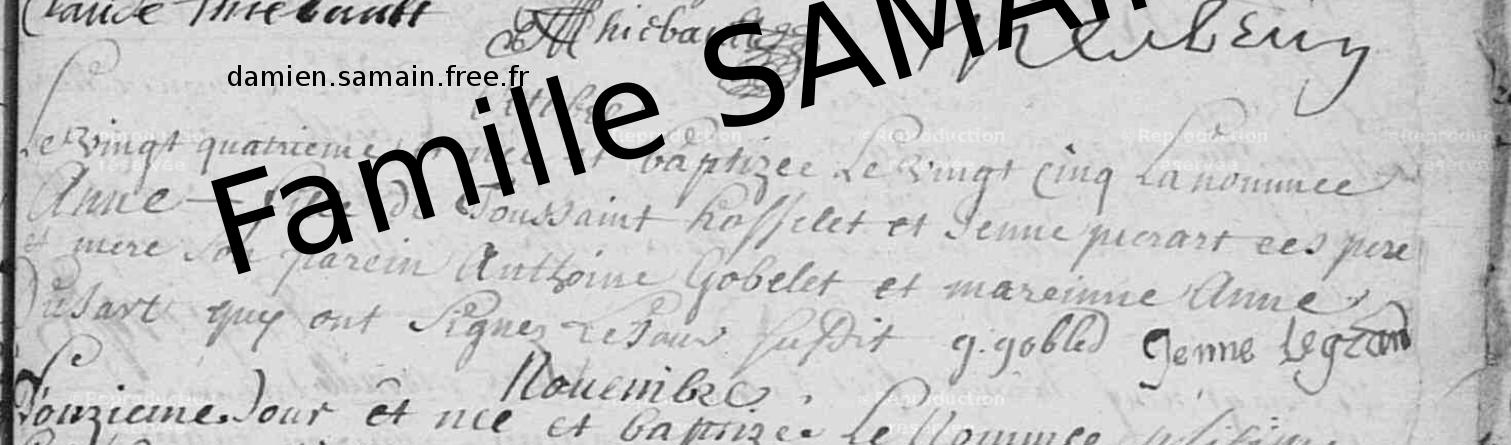 Claude Thiebault Thiebault
damien.samain.free.fr
Famille SAMAIN
Octobre
Le vingt quatrieme est née et baptizee Le vingt cinq La nommee
Anne fille de Toussaint hosselet et Jenne pierart ces pere
et mere son parein Anthoine Gobelet et mareinne Anne
Dusart quy ont Signez Le Jour susdit g. gobled Jenne Legrand
Nouembre
Le
Douzieme Jour et nee et baptizee Le Nommee